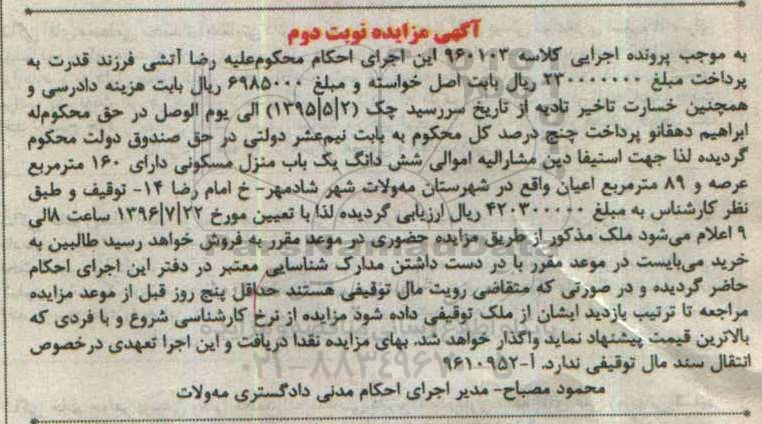 آگهی مزایده نوبت دوم
به موجب پرونده اجرایی کلاسه ۹۶۰۱۰۳ این اجرای احکام محکوم‌علیه رضا آتشی فرزند قدرت به
پرداخت مبلغ ۲۳۰۰۰۰۰۰۰ ریال بابت اصل خواسته و مبلغ ۶۹۸۵۰۰۰ ریال بابت هزینه دادرسی و
همچنین خسارت تاخیر تادیه از تاریخ سررسید چک (۱۳۹۵|۵|۲) الی یوم الوصل در حق محکوم‌له
ابراهیم دهقانو پرداخت چنج درصد کل محکوم به بابت نیم‌عشر دولتی در حق صندوق دولت محکوم
گردیده لذا جهت استیفا دین مشارالیه اموالی شش دانگ یک باب منزل مسکونی دارای ۱۶۰ مترمربع
عرصه و ۸۹ مترمربع اعیان واقع در شهرستان مه‌ولات شهر شادمهر- خ امام رضا ۱۴- توقیف و طبق
نظر کارشناس به مبلغ ۴۲۰۳۰۰۰۰۰ ریال ارزیابی گردیده لذا با تعیین مورخ ۱۳۹۶|۷|۲۲ ساعت ۸الی
۹ اعلام می‌شود ملک مذکور از طریق مزایده حضوری در موعد مقرر به فروش خواهد رسید طالبین به
خرید می‌بایست در موعد مقرر با در دست داشتن مدارک شناسایی معتبر در دفتر این اجرای احکام
حاضر گردیده و در صورتی که متقاضی رویت مال توقیفی هستند حداقل پنج روز قبل از موعد مزایده
مراجعه تا ترتیب بازدید ایشان از ملک توقیفی داده شود مزایده از نرخ کارشناسی شروع و با فردی که
بالاترین قیمت پیشنهاد نماید واگذار خواهد شد. بهای مزایده نقدا دریافت و این اجرا تعهدی درخصوص
انتقال سند مال توقیفی ندارد. آ-۹۶۱۰۹۵۲
محمود مصباح- مدیر اجرای احکام مدنی دادگستری مه‌ولات
ParsNamadData
۰۲۱-۸۸۳۴۹۶۷۰